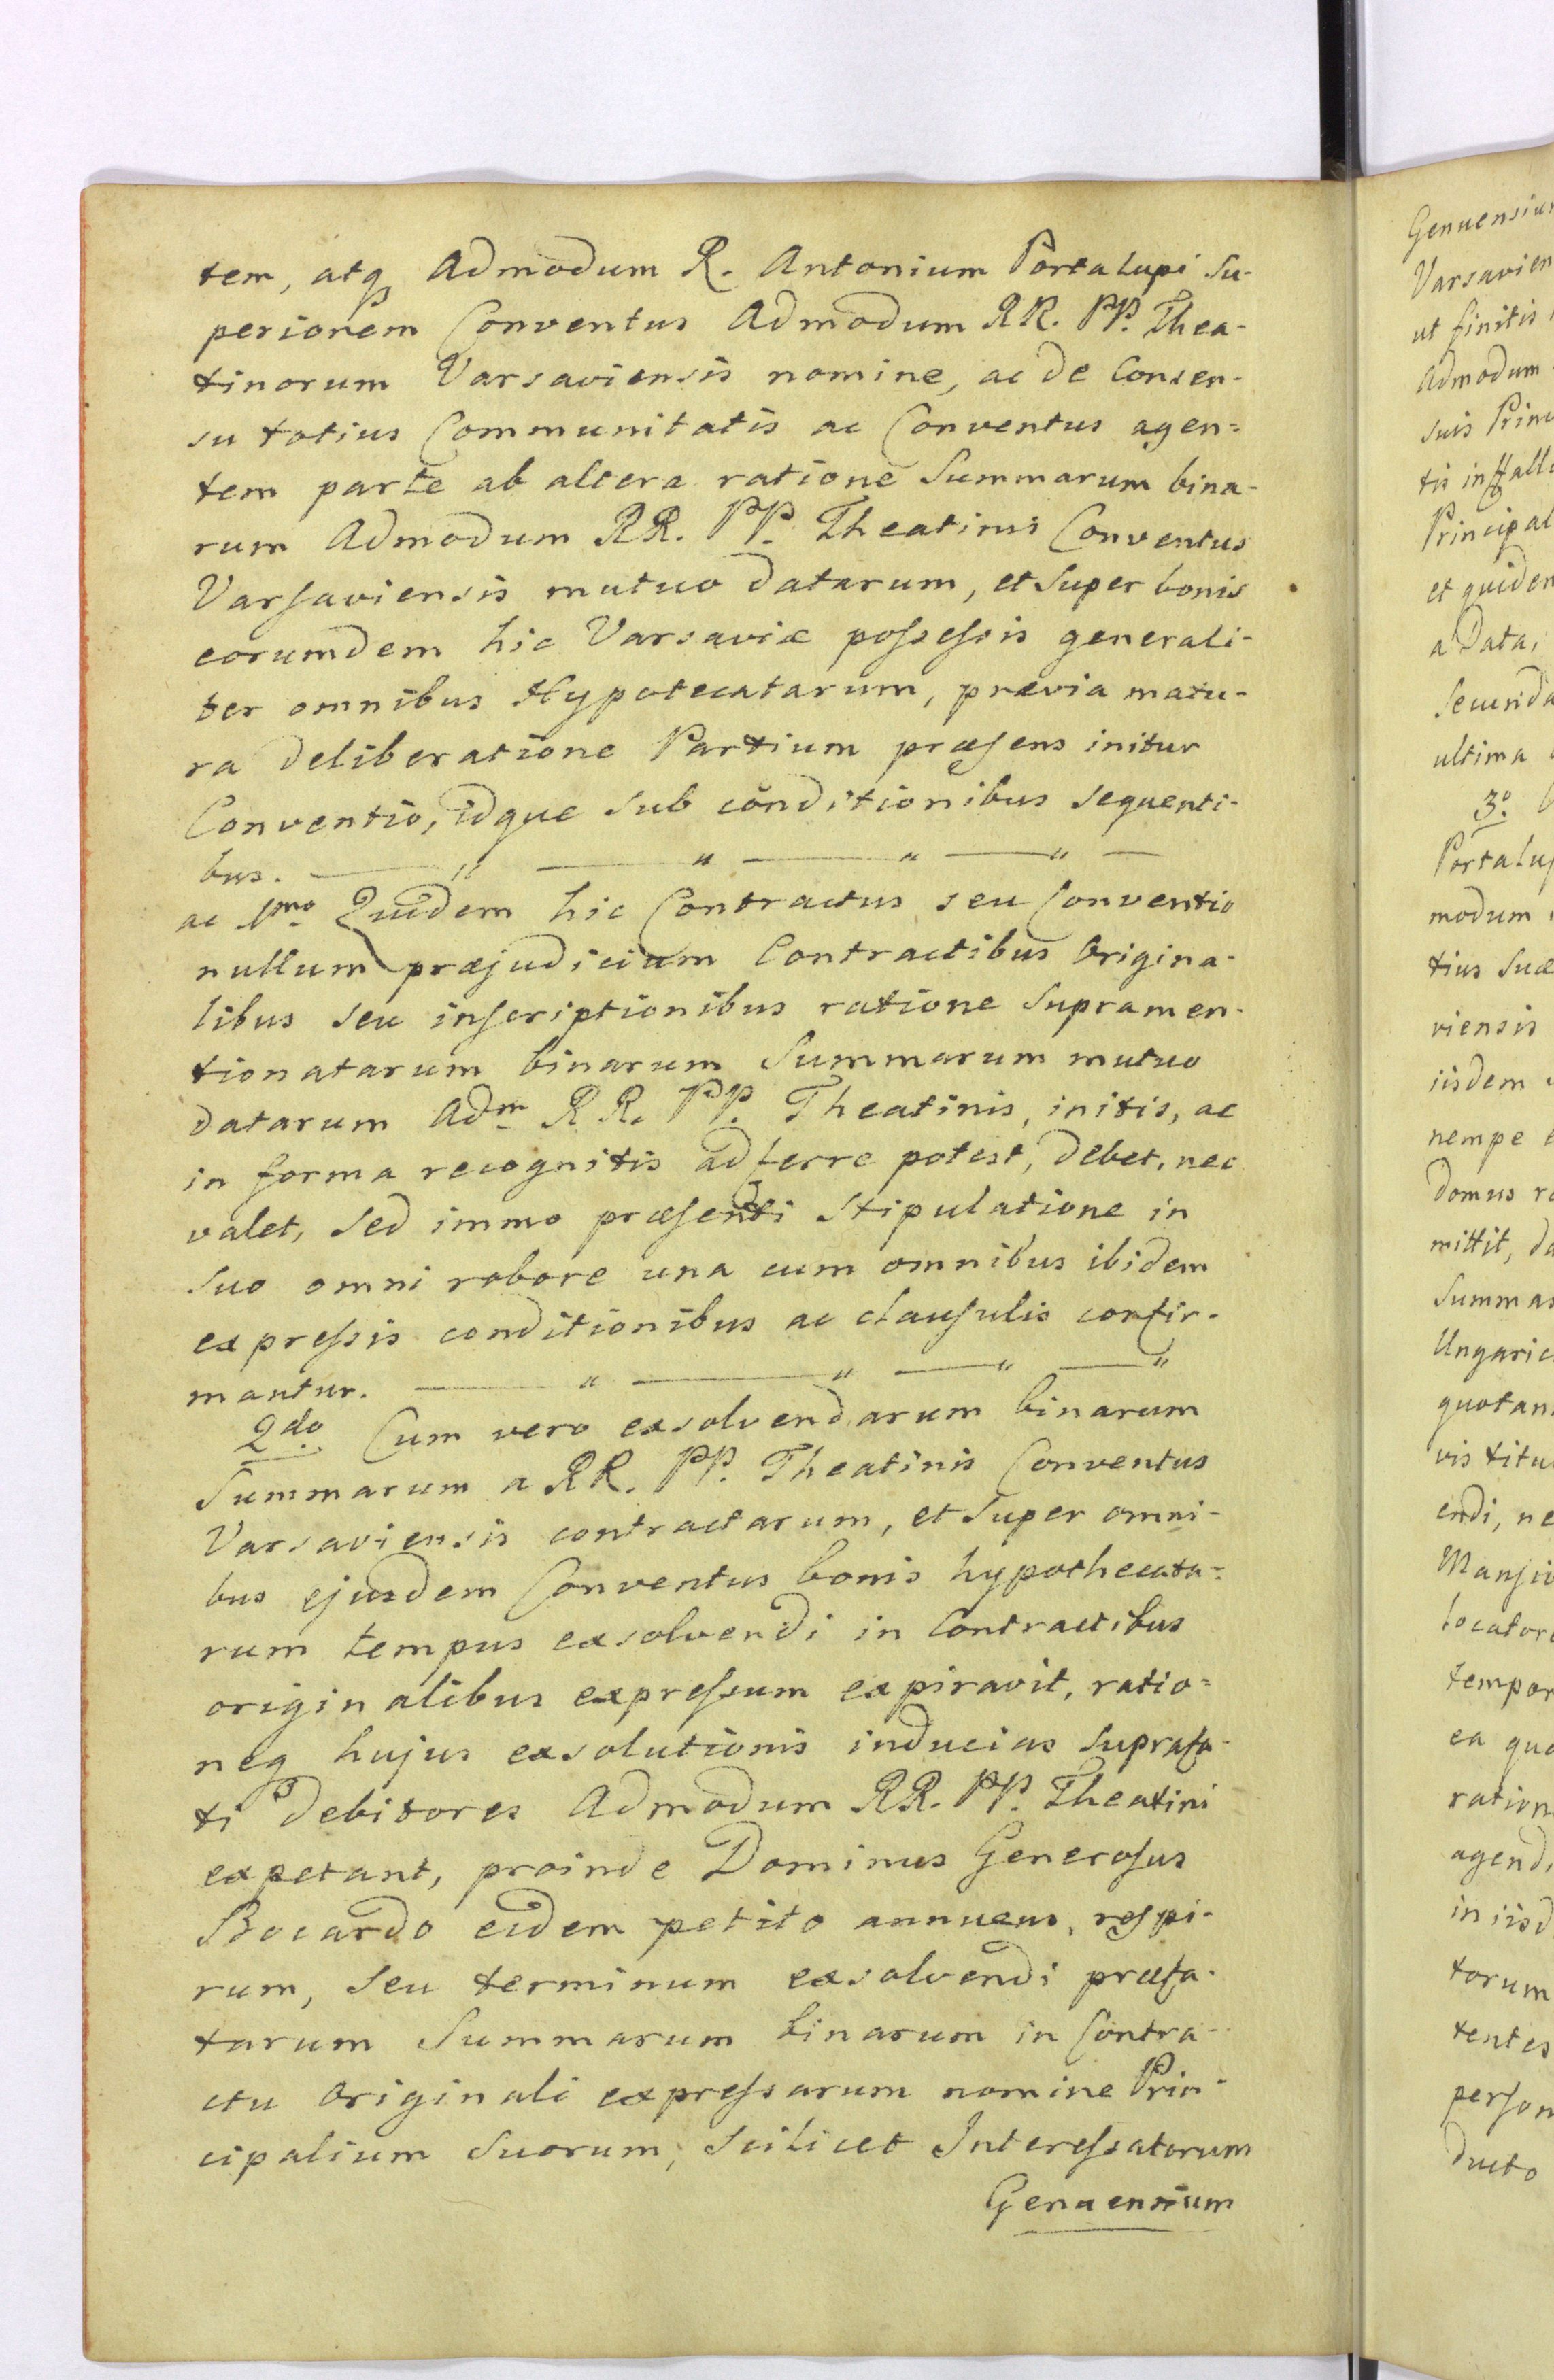 tem, atq Admodum R. Antonium Portalupi Su-
periorem Conventus Admodum RR. PP. Thea-
tinorum Varsaviensis nomine, ac de Consen-
su totius Communitatis ac Conventus agen=
tem parte ab altera ratione Summarum bina-
rum Admodum RR. PP. Theatinis Conventus
Varsaviensis mutuo datarum, et super bonis
eorumdem hic Varsaviæ possessis generali-
ter omnibus Hypotecatarum, prævia matu-
ra deliberatione Partium præsens initur
Conventio, idque sub conditionibus sequenti-
bus. — " — " — " — " —
ac 1mo Quidem hic Contractus seu Conventio
nullum præjudicium Contractibus Origina-
libus seu inscriptionibus ratione supramen-
tionatarum binarum Summarum mutuo
datarum Adm RR. PP. Theatinis, initis, ac
in forma recognitis adferre potest, debet, nec
valet, sed immo præsenti stipulatione in
suo omni robore una cum omnibus ibidem
expressis conditionibus ac clausulis confir-
mantur. — " — " — " — "
2do Cum vero exsolvendarum binarum
Summarum a RR. PP. Theatinis Conventus
Varsaviensis contractarum, et super omni-
bus ejusdem Conventus bonis hypothecata=
rum tempus exsolvendi in Contractibus
originalibus expressum expiravit, ratio=
neq hujus exsolutionis inducias suprafa-
ti debitores Admodum RR. PP. Theatini
expetant, proinde Dominus Generosus
Bocardo eidem petito annuens, respi-
rum, seu terminum exsolvendi præfa-
tarum Summarum binarum in Contra-
ctu Originali expressarum nomine Prin-
cipalium suorum, scilicet Interessatorum
Genuensium
Genuensium
Varsavien
ut finitis
Admodum
suis Princ
tis in Hall
Principal
et quidem
a Data,
secunda
ultima
3o
Portalup
modum
tius suæ
viensis
iisdem
nempe
domus
mittit, da
Summas
Ungaric
quotan
vis titu
endi, ne
Mansio
locator
tempor
ea quo
ration
agend
in iisd
torum
tentes
person
ducto